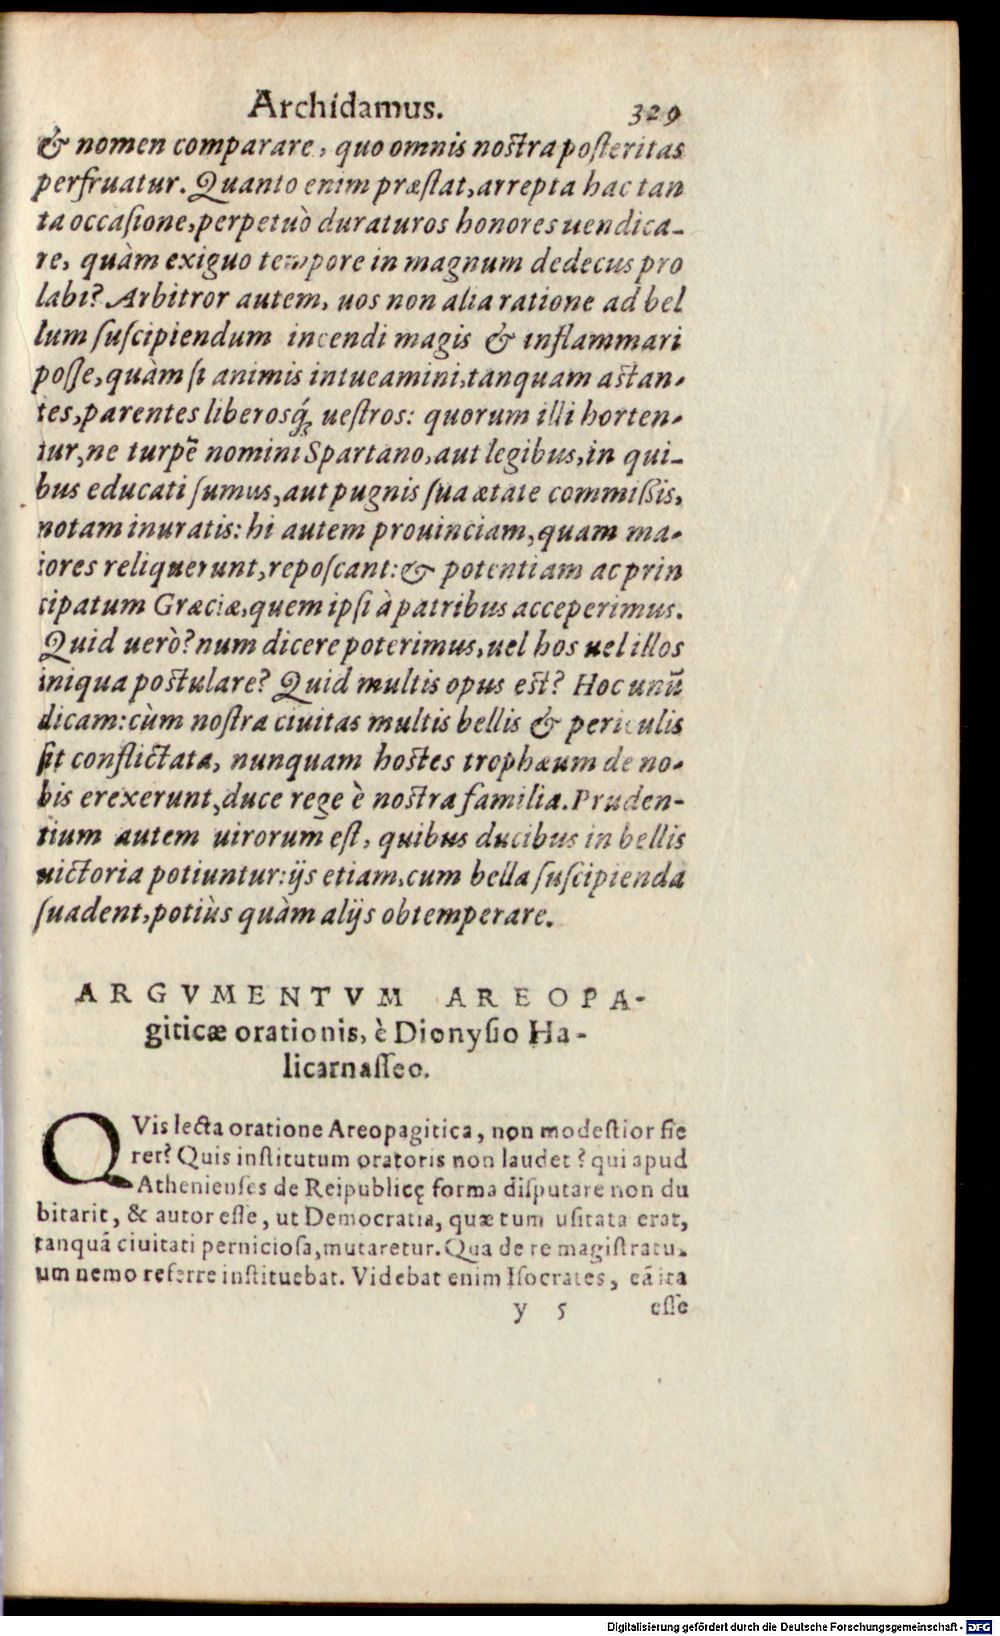 Archidamus. 329
& nomen comparare, quo omnis nostra posteritas
perfruatur. Quanto enim præstat, arrepta hac tan
ta occasione, perpetuò duraturos honores uendica-
re, quàm exiguo tempore in magnum dedecus pro
labi? Arbitror autem, uos non alia ratione ad bel
lum suscipiendum incendi magis & inflammari
posse, quàm si animis intueamini, tanquam astan-
tes, parentes liberosq́; uestros: quorum illi horten-
tur, ne turpē nomini Spartano, aut legibus, in qui-
bus educati sumus, aut pugnis sua ætate commißis,
notam inuratis: hi autem prouinciam, quam ma-
iores reliquerunt, reposcant: & potentiam ac prin
cipatum Græciæ, quem ipsi à patribus acceperimus.
Quid uerò? num dicere poterimus, uel hos uel illos
iniqua postulare? Quid multis opus est? Hoc unū
dicam: cùm nostra ciuitas multis bellis & periculis
sit conflictata, nunquam hostes trophæum de no-
bis erexerunt, duce rege è nostra familia. Pruden-
tium autem uirorum est, quibus ducibus in bellis
uictoria potiuntur: ijs etiam, cum bella suscipienda
suadent, potiùs quàm alijs obtemperare.
ARGVMENTVM AREOPA-
giticæ orationis, è Dionysio Ha-
licarnasseo.
QVis lecta oratione Areopagitica, non modestior fie
ret? Quis institutum oratoris non laudet? qui apud
Athenienses de Reipublicę forma disputare non du
bitarit, & autor esse, ut Democratia, quæ tum usitata erat,
tanquā ciuitati perniciosa, mutaretur. Qua de re magistratu-
um nemo referre instituebat. Videbat enim Isocrates, eā ita
y 5 esse
Digitalisierung gefördert durch die Deutsche Forschungsgemeinschaft - DFG